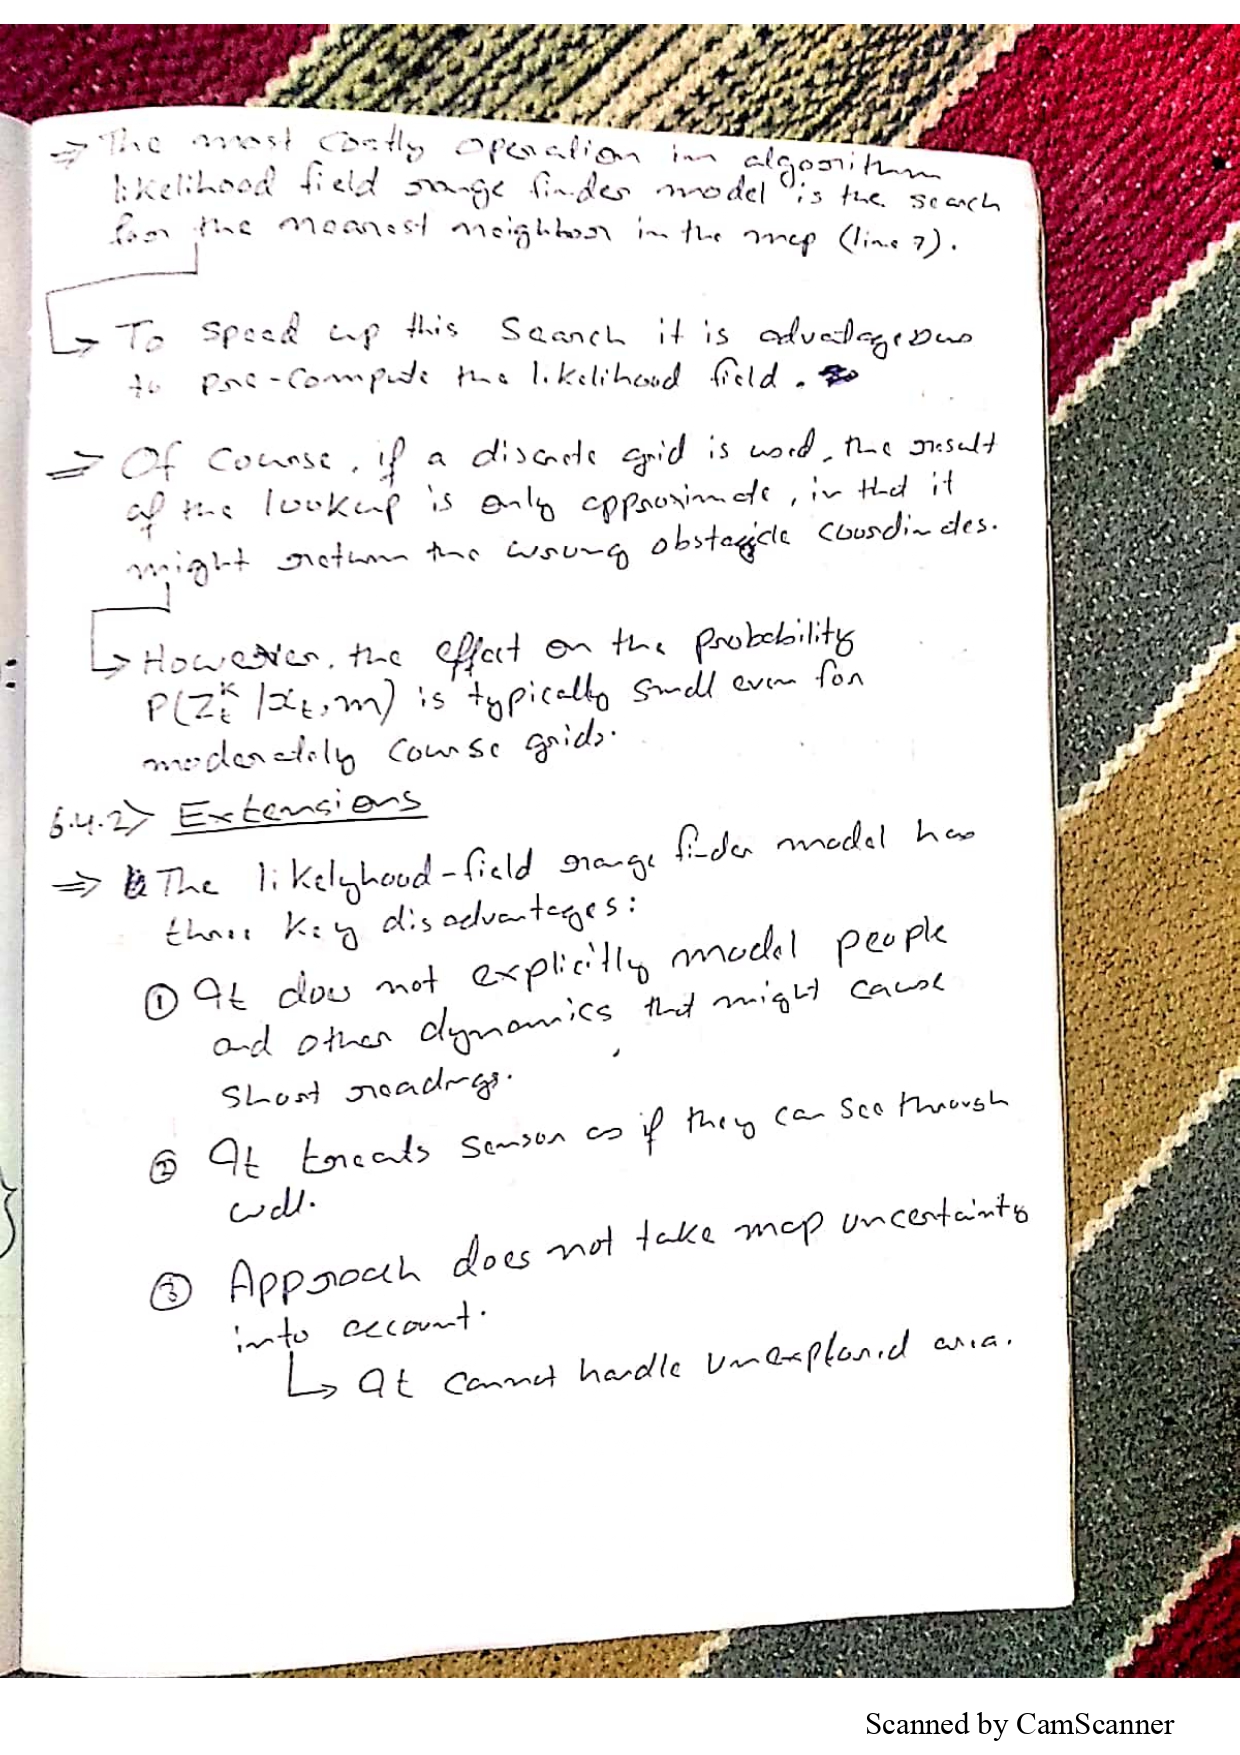 ⇒ The most costly operation in algorithm
likelihood field range finder model is the search
for the nearest neighbor in the map (line 7).
↳ To speed up this search it is advatageous
to pre-compute the likelihood field.
⇒ Of course, if a discrete grid is used, the result
of the lookup is only approximate, in that it
might return the wrong obstacle coordinates.
↳ However, the effect on the probability
P(Z_t^k | x_t, m) is typically small even for
moderately course grids.
6.4.2> Extensions
⇒ The likelyhood-field range finder model has
three key disadvantages:
① It does not explicitly model people
and other dynamics that might cause
short readings.
② It treats sensor as if they can see through
wall.
③ Approach does not take map uncertainty
into account.
↳ It cannot handle unexplored area.
Scanned by CamScanner